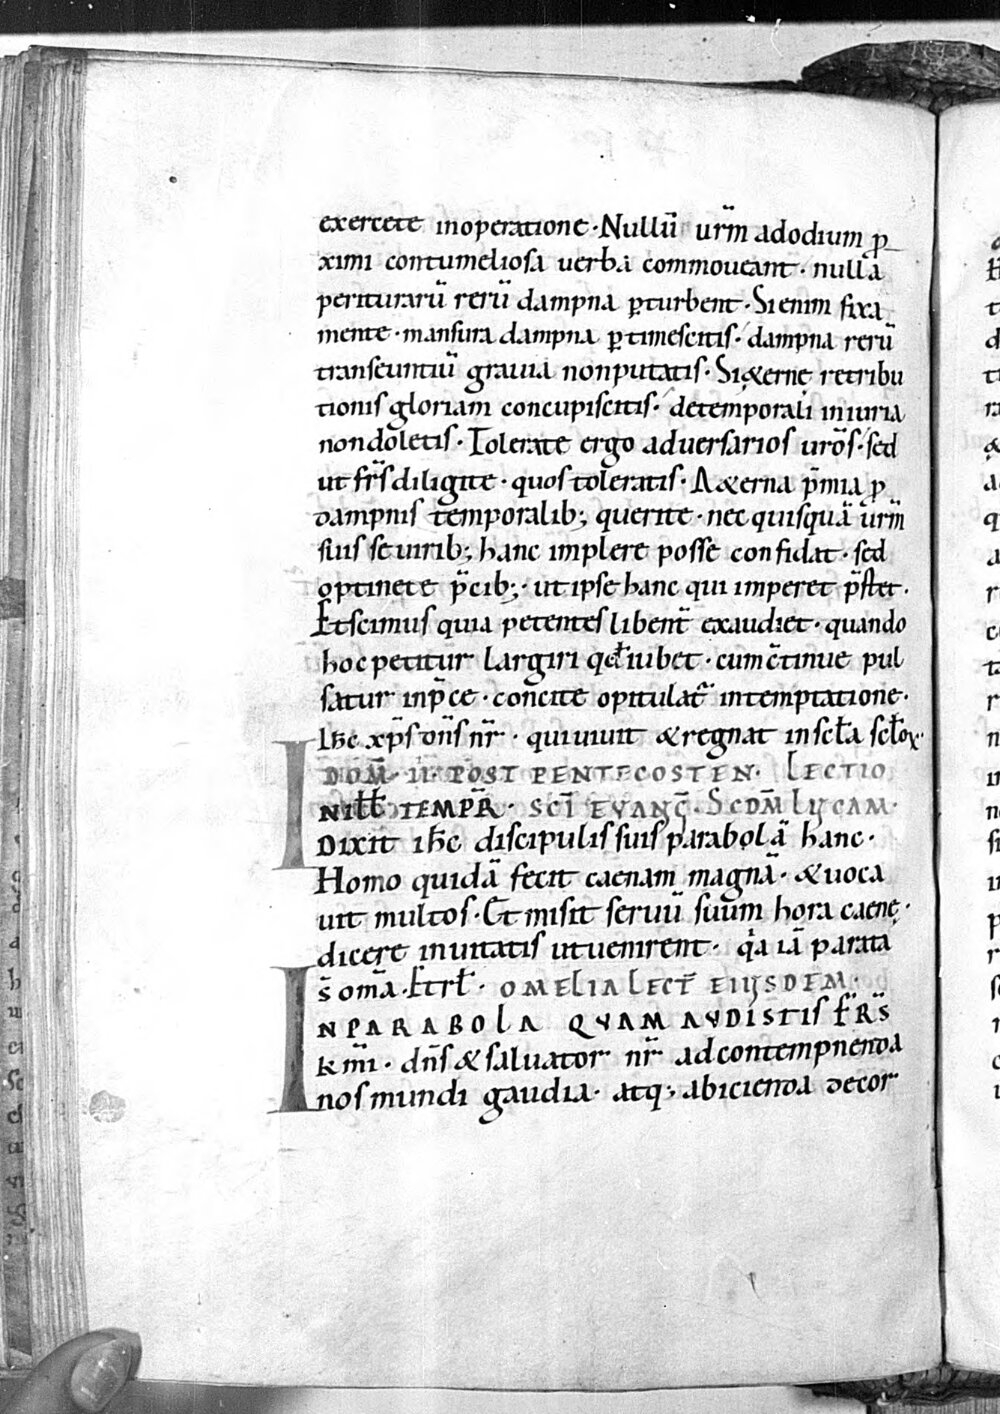 exercete inoperatione · Nullū urm̄ adodium p
ximi contumeliosa uerba commoueant · nulla
periturarū rerū dampna pturbent · Si enim fixa
mente · mansura dampna ptimescitis · dampna rerū
transeuntiū grauia nonputatis · Si &ernę retribu
tionis gloriam concupiscitis · detemporali iniuria
nondoletis · Tolerate ergo aduersarios urōs · sed
ut frs̄ diligite · quos toleratis · A&erna p̄mia p
dampnis temporalib; querite · nec quisquā urm̄
suis se uirib; hanc implere posse confidat · sed
optinete p̄cib; · ut ipse hanc qui imperet p̄stet ·
Et scimus quia petentes libent̄ exaudiet · quando
hoc petitur largiri qđ iubet · cum c̄tinue pul
satur inp̄ce · concite opitulat̄ intemptatione ·
Ihc̄ xp̄s dn̄s nr̄ · qui uiuit &regnat insc̄la sc̄lox ·
DOM̄ · II · POST PENTECOSTEN · LECTIO
IN ILL̄ TEMPR̄ · SCI EVANḠ · SCDM̄ LUCAM ·
Dixit ihc̄ discipulis suis parabolā hanc ·
Homo quidā fecit caenam magnā · &uoca
uit multos · Et misit seruū suum hora caenę ·
dicere inuitatis ut uenirent · qa iā parata
s̄ omā · Et rł · OMELIA LECT̄ EIUSDEM ·
IN PARABOLA QVAM AVDISTIS FR̄S
km̄i · dn̄s & saluator nr̄ adcontempnenda
nos mundi gaudia · atq; abicienda decor